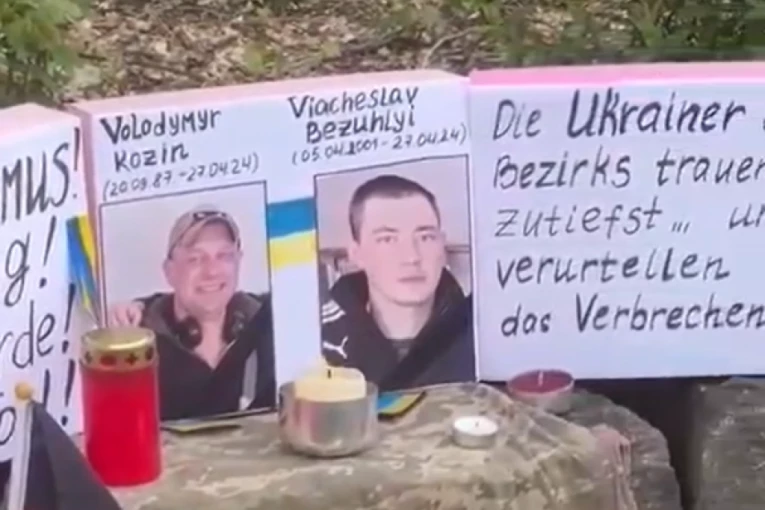 MUS!
g!
rde!
Volodymyr
Kozin
(20.09.87.-27.04.24)
Viacheslav
Bezuhlyi
(05.04.2001-27.04.24)
Die Ukrainer
Bezirks trauer
zutiefst... un
verurteilen
das Verbrechen